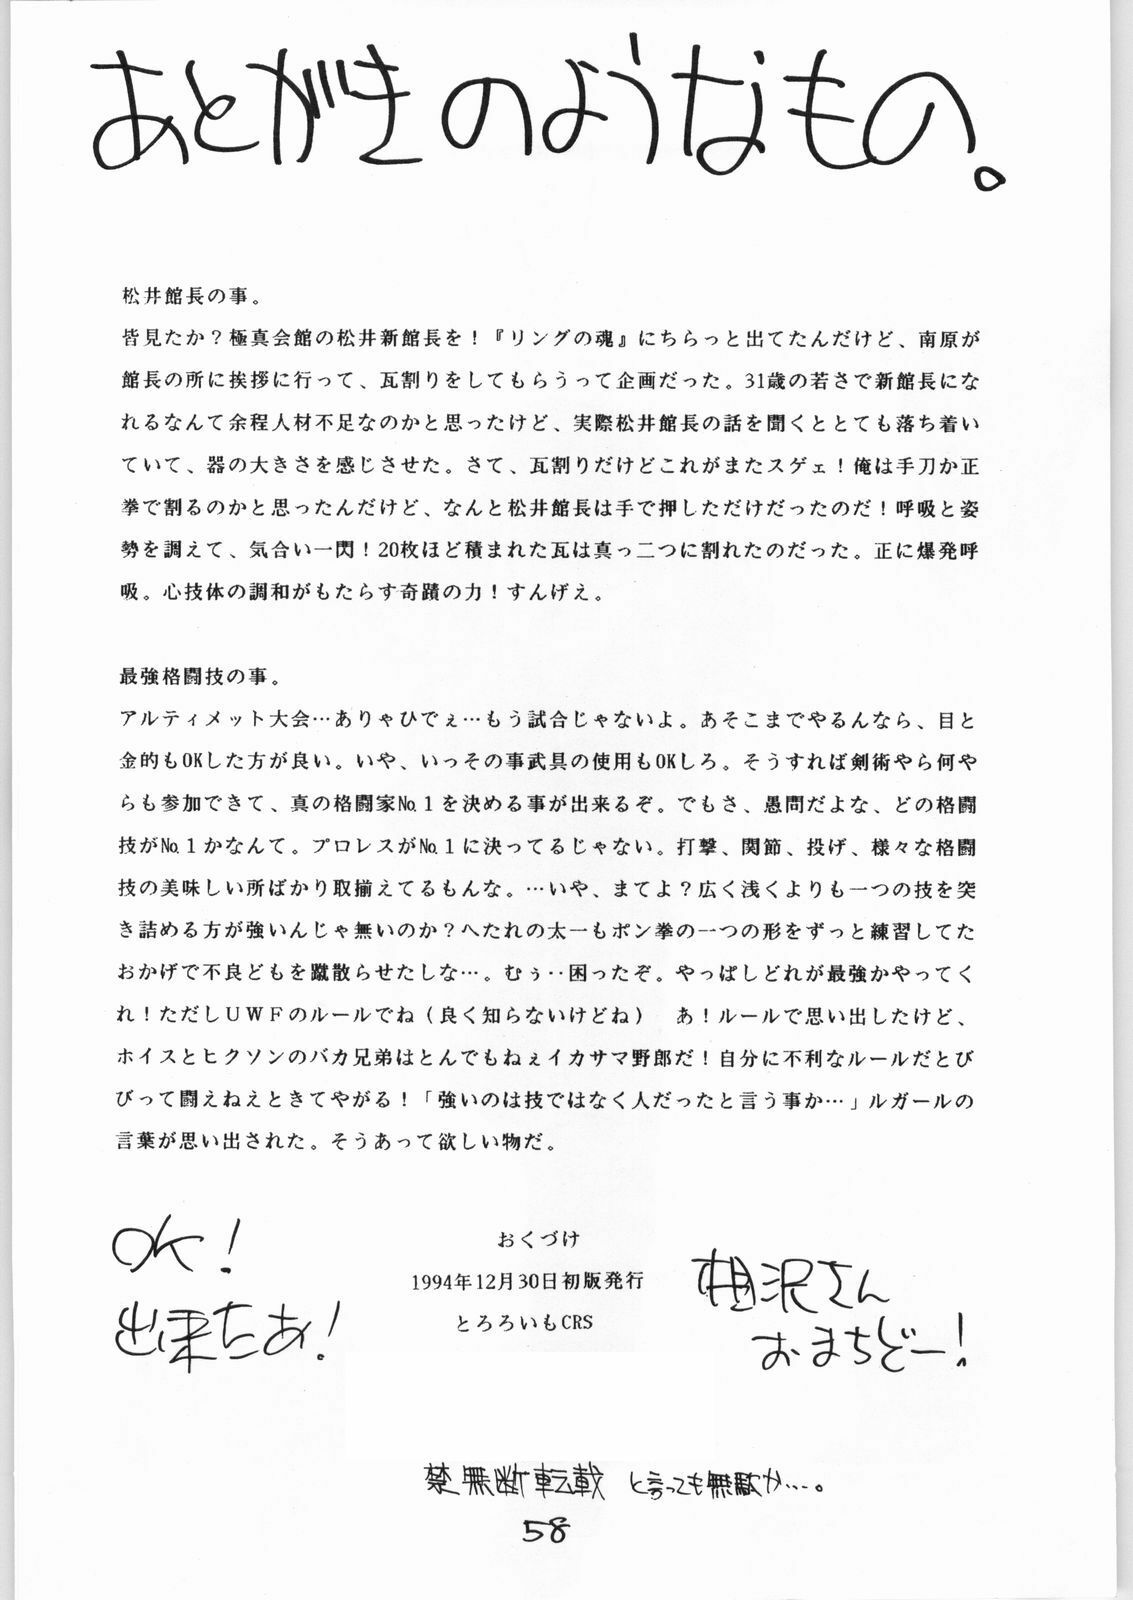 あとがきのようなもの。
松井館長の事。
皆見たか？極真会館の松井新館長を！『リングの魂』にちらっと出てたんだけど、南原が
館長の所に挨拶に行って、瓦割りをしてもらうって企画だった。31歳の若さで新館長にな
れるなんて余程人材不足なのかと思ったけど、実際松井館長の話を聞くととても落ち着い
ていて、器の大きさを感じさせた。さて、瓦割りだけどこれがまたスゲェ！俺は手刀か正
拳で割るのかと思ったんだけど、なんと松井館長は手で押しただけだったのだ！呼吸と姿
勢を調えて、気合い一閃！20枚ほど積まれた瓦は真っ二つに割れたのだった。正に爆発呼
吸。心技体の調和がもたらす奇蹟の力！すんげえ。
最強格闘技の事。
アルティメット大会…ありゃひでぇ…もう試合じゃないよ。あそこまでやるんなら、目と
金的もOKした方が良い。いや、いっその事武具の使用もOKしろ。そうすれば剣術やら何や
らも参加できて、真の格闘家№1を決める事が出来るぞ。でもさ、愚問だよな、どの格闘
技が№1かなんて。プロレスが№1に決ってるじゃない。打撃、関節、投げ、様々な格闘
技の美味しい所ばかり取揃えてるもんな。…いや、まてよ？広く浅くよりも一つの技を突
き詰める方が強いんじゃ無いのか？へたれの太一もポン拳の一つの形をずっと練習してた
おかげで不良どもを蹴散らせたしな…。むぅ‥困ったぞ。やっぱしどれが最強かやってく
れ！ただしＵＷＦのルールでね（良く知らないけどね）　あ！ルールで思い出したけど、
ホイスとヒクソンのバカ兄弟はとんでもねぇイカサマ野郎だ！自分に不利なルールだとび
びって闘えねえときてやがる！「強いのは技ではなく人だったと言う事か…」ルガールの
言葉が思い出された。そうあって欲しい物だ。
OK！
出来たあ！
おくづけ
1994年12月30日初版発行
とろろいもCRS
相沢さん
おまちどー！
禁無断転載 と言っても無駄か…。
58